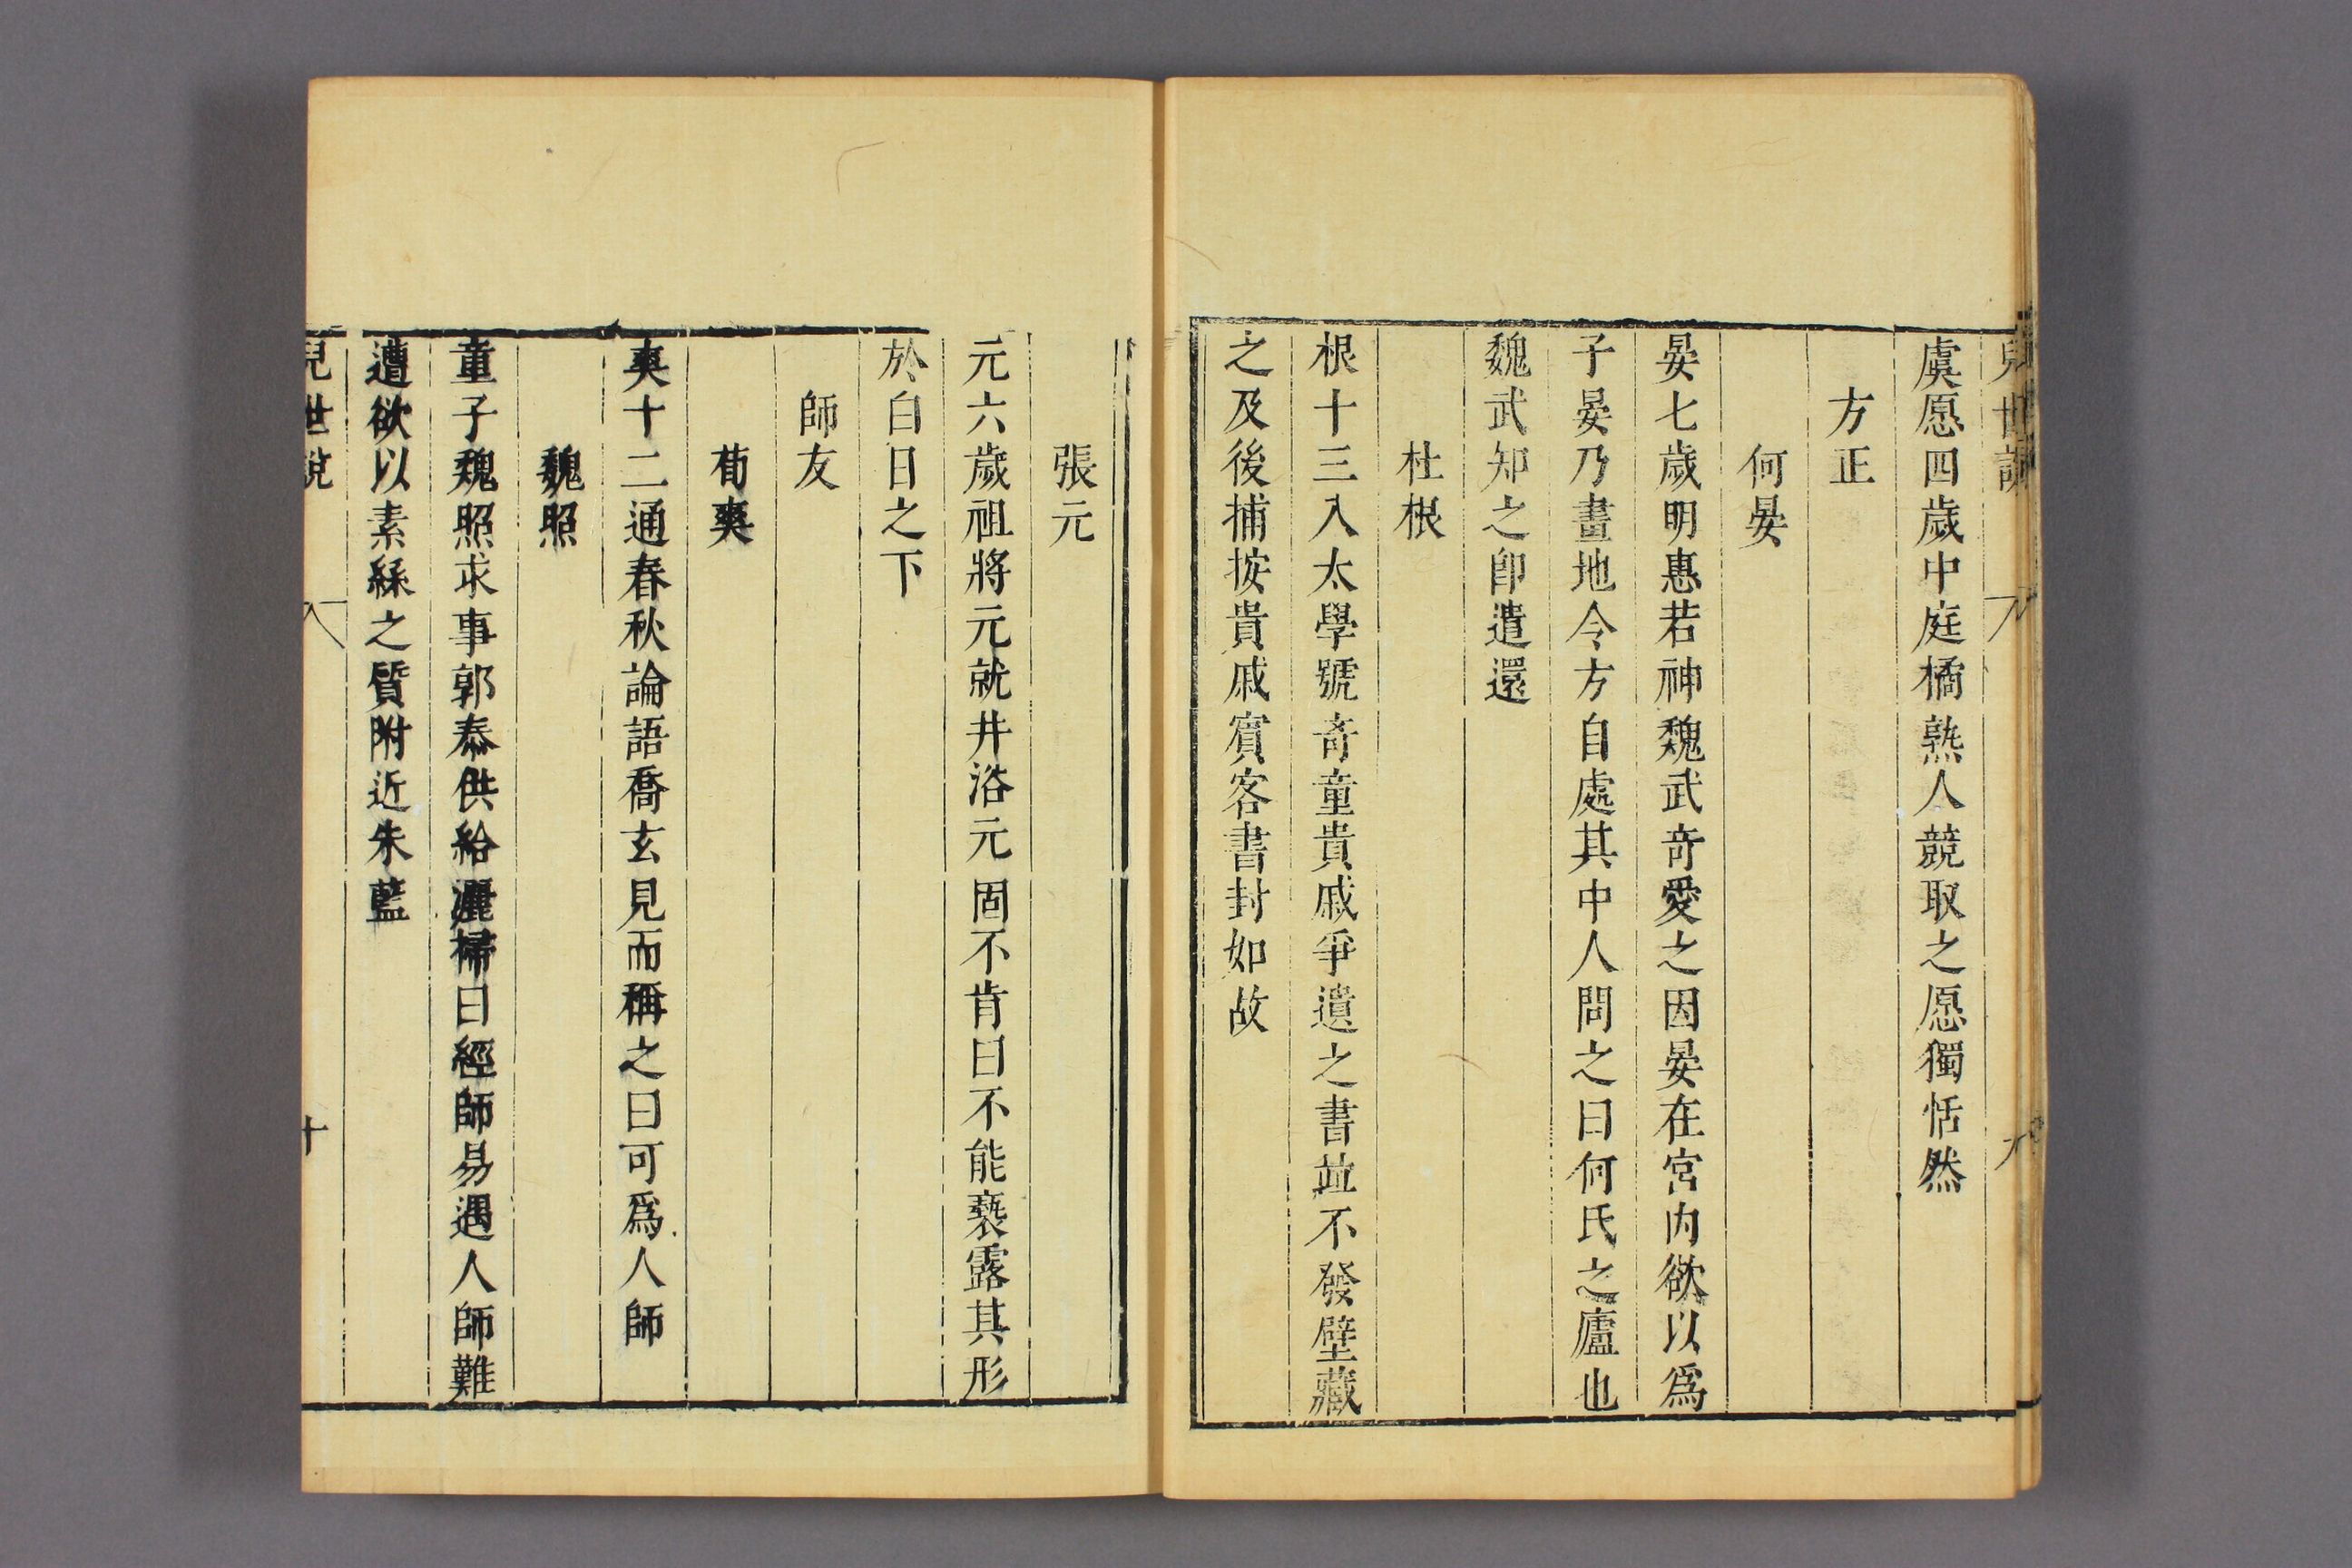 兒世說
虞愿四歲中庭橘熟人競取之愿獨恬然
方正
何晏
晏七歲明惠若神魏武奇愛之因晏在宮內欲以爲
子晏乃畫地令方自處其中人問之曰何氏之廬也
魏武知之卽遣還
杜根
根十三入太學號奇童貴戚爭遺之書並不發壁藏
之及後捕按貴戚賓客書封如故
張元
元六歲祖將元就井浴元固不肯曰不能褻露其形
於白日之下
師友
荀爽
爽十二通春秋論語喬玄見而稱之曰可爲人師
魏照
童子魏照求事郭泰供給灑掃曰經師易遇人師難
遭欲以素絲之質附近朱藍
兒世說
十